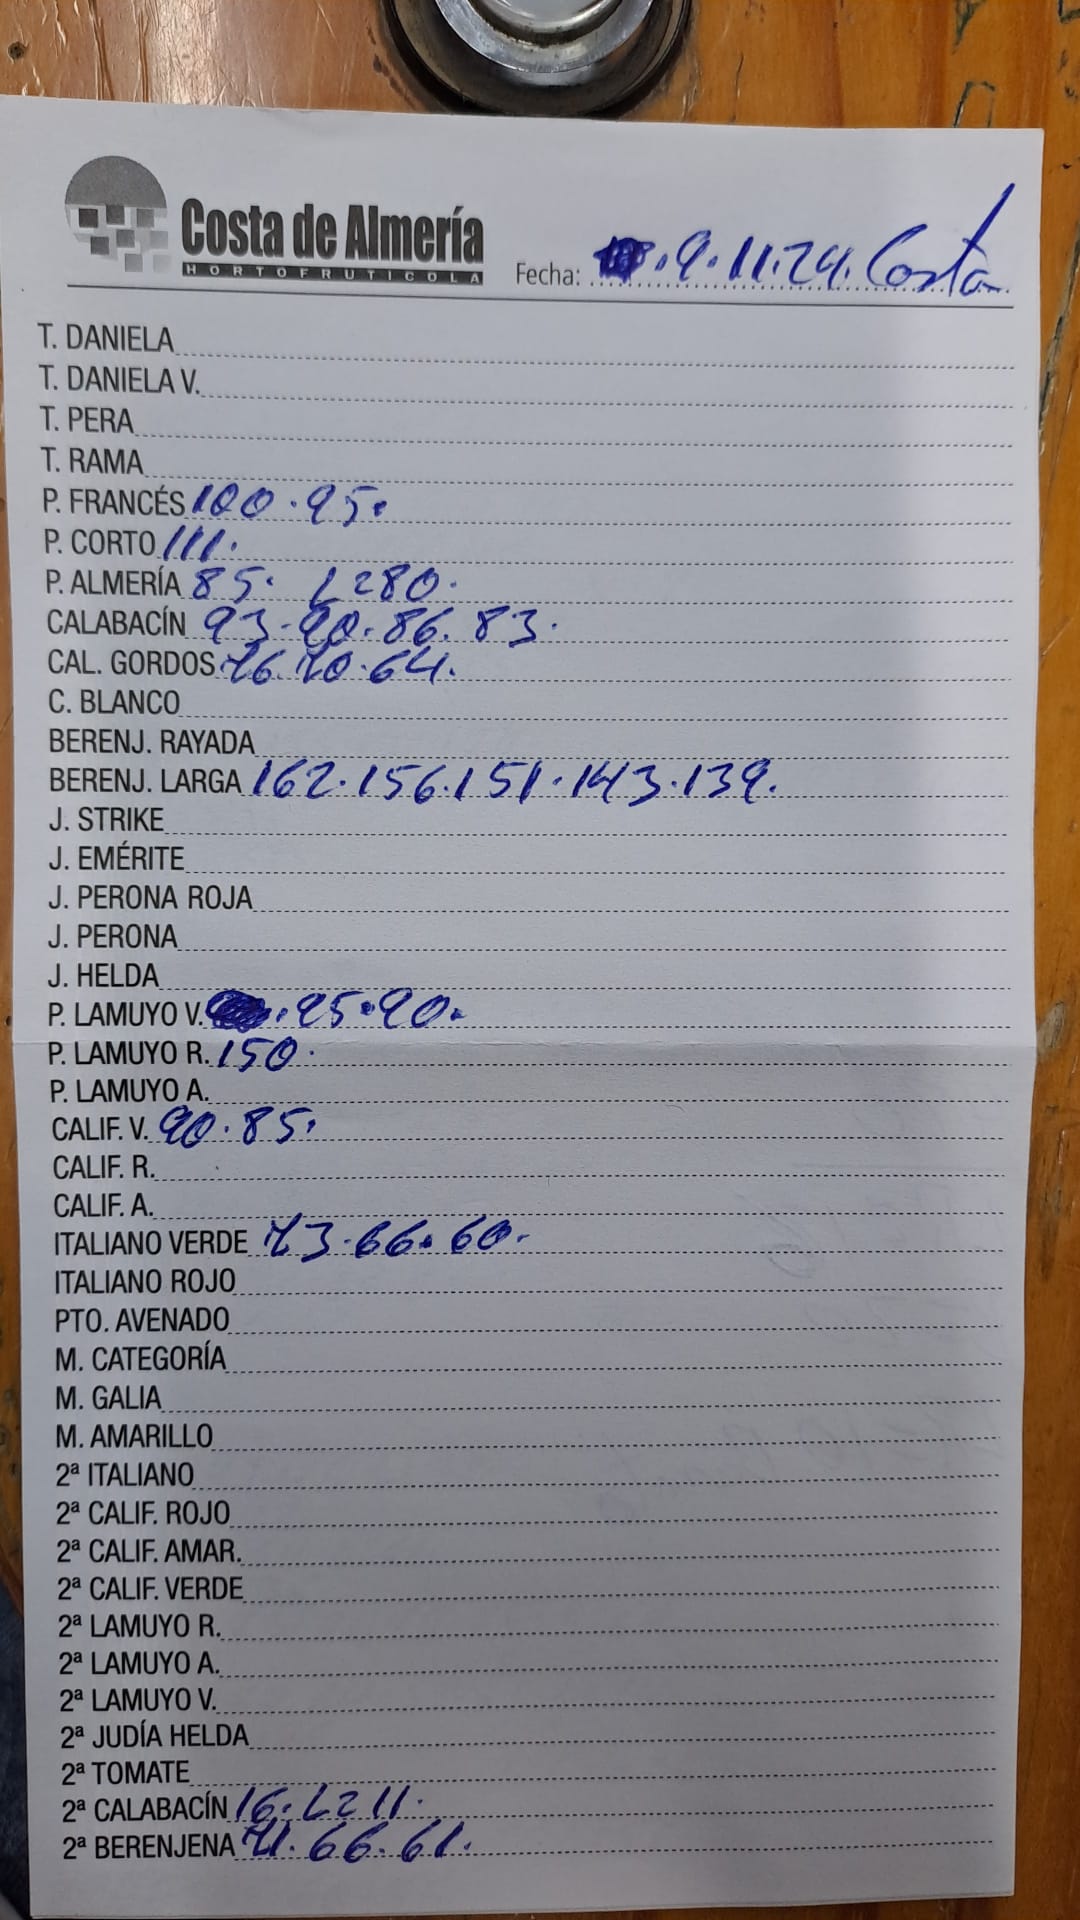 Costa de Almería
HORTOFRUTICOLA
Fecha: . 9. 11. 24. Costa
T. DANIELA
T. DANIELA V.
T. PERA
T. RAMA
P. FRANCÉS 100 . 95.
P. CORTO 111.
P. ALMERÍA 85. L280.
CALABACÍN 93. 90. 86. 83.
CAL. GORDOS 76. 70. 64.
C. BLANCO
BERENJ. RAYADA
BERENJ. LARGA 162. 156. 151. 143. 139.
J. STRIKE
J. EMÉRITE
J. PERONA ROJA
J. PERONA
J. HELDA
P. LAMUYO V. . 95. 90.
P. LAMUYO R. 150.
P. LAMUYO A.
CALIF. V. 90. 85.
CALIF. R.
CALIF. A.
ITALIANO VERDE 73. 66. 60.
ITALIANO ROJO
PTO. AVENADO
M. CATEGORÍA
M. GALIA
M. AMARILLO
2ª ITALIANO
2ª CALIF. ROJO
2ª CALIF. AMAR.
2ª CALIF. VERDE
2ª LAMUYO R.
2ª LAMUYO A.
2ª LAMUYO V.
2ª JUDÍA HELDA
2ª TOMATE
2ª CALABACÍN 16. L211.
2ª BERENJENA 71. 66. 61.